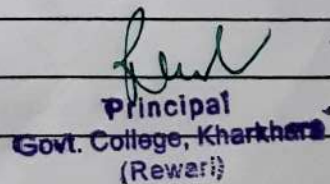 Principal
Govt. College, Kharkhara
(Rewari)